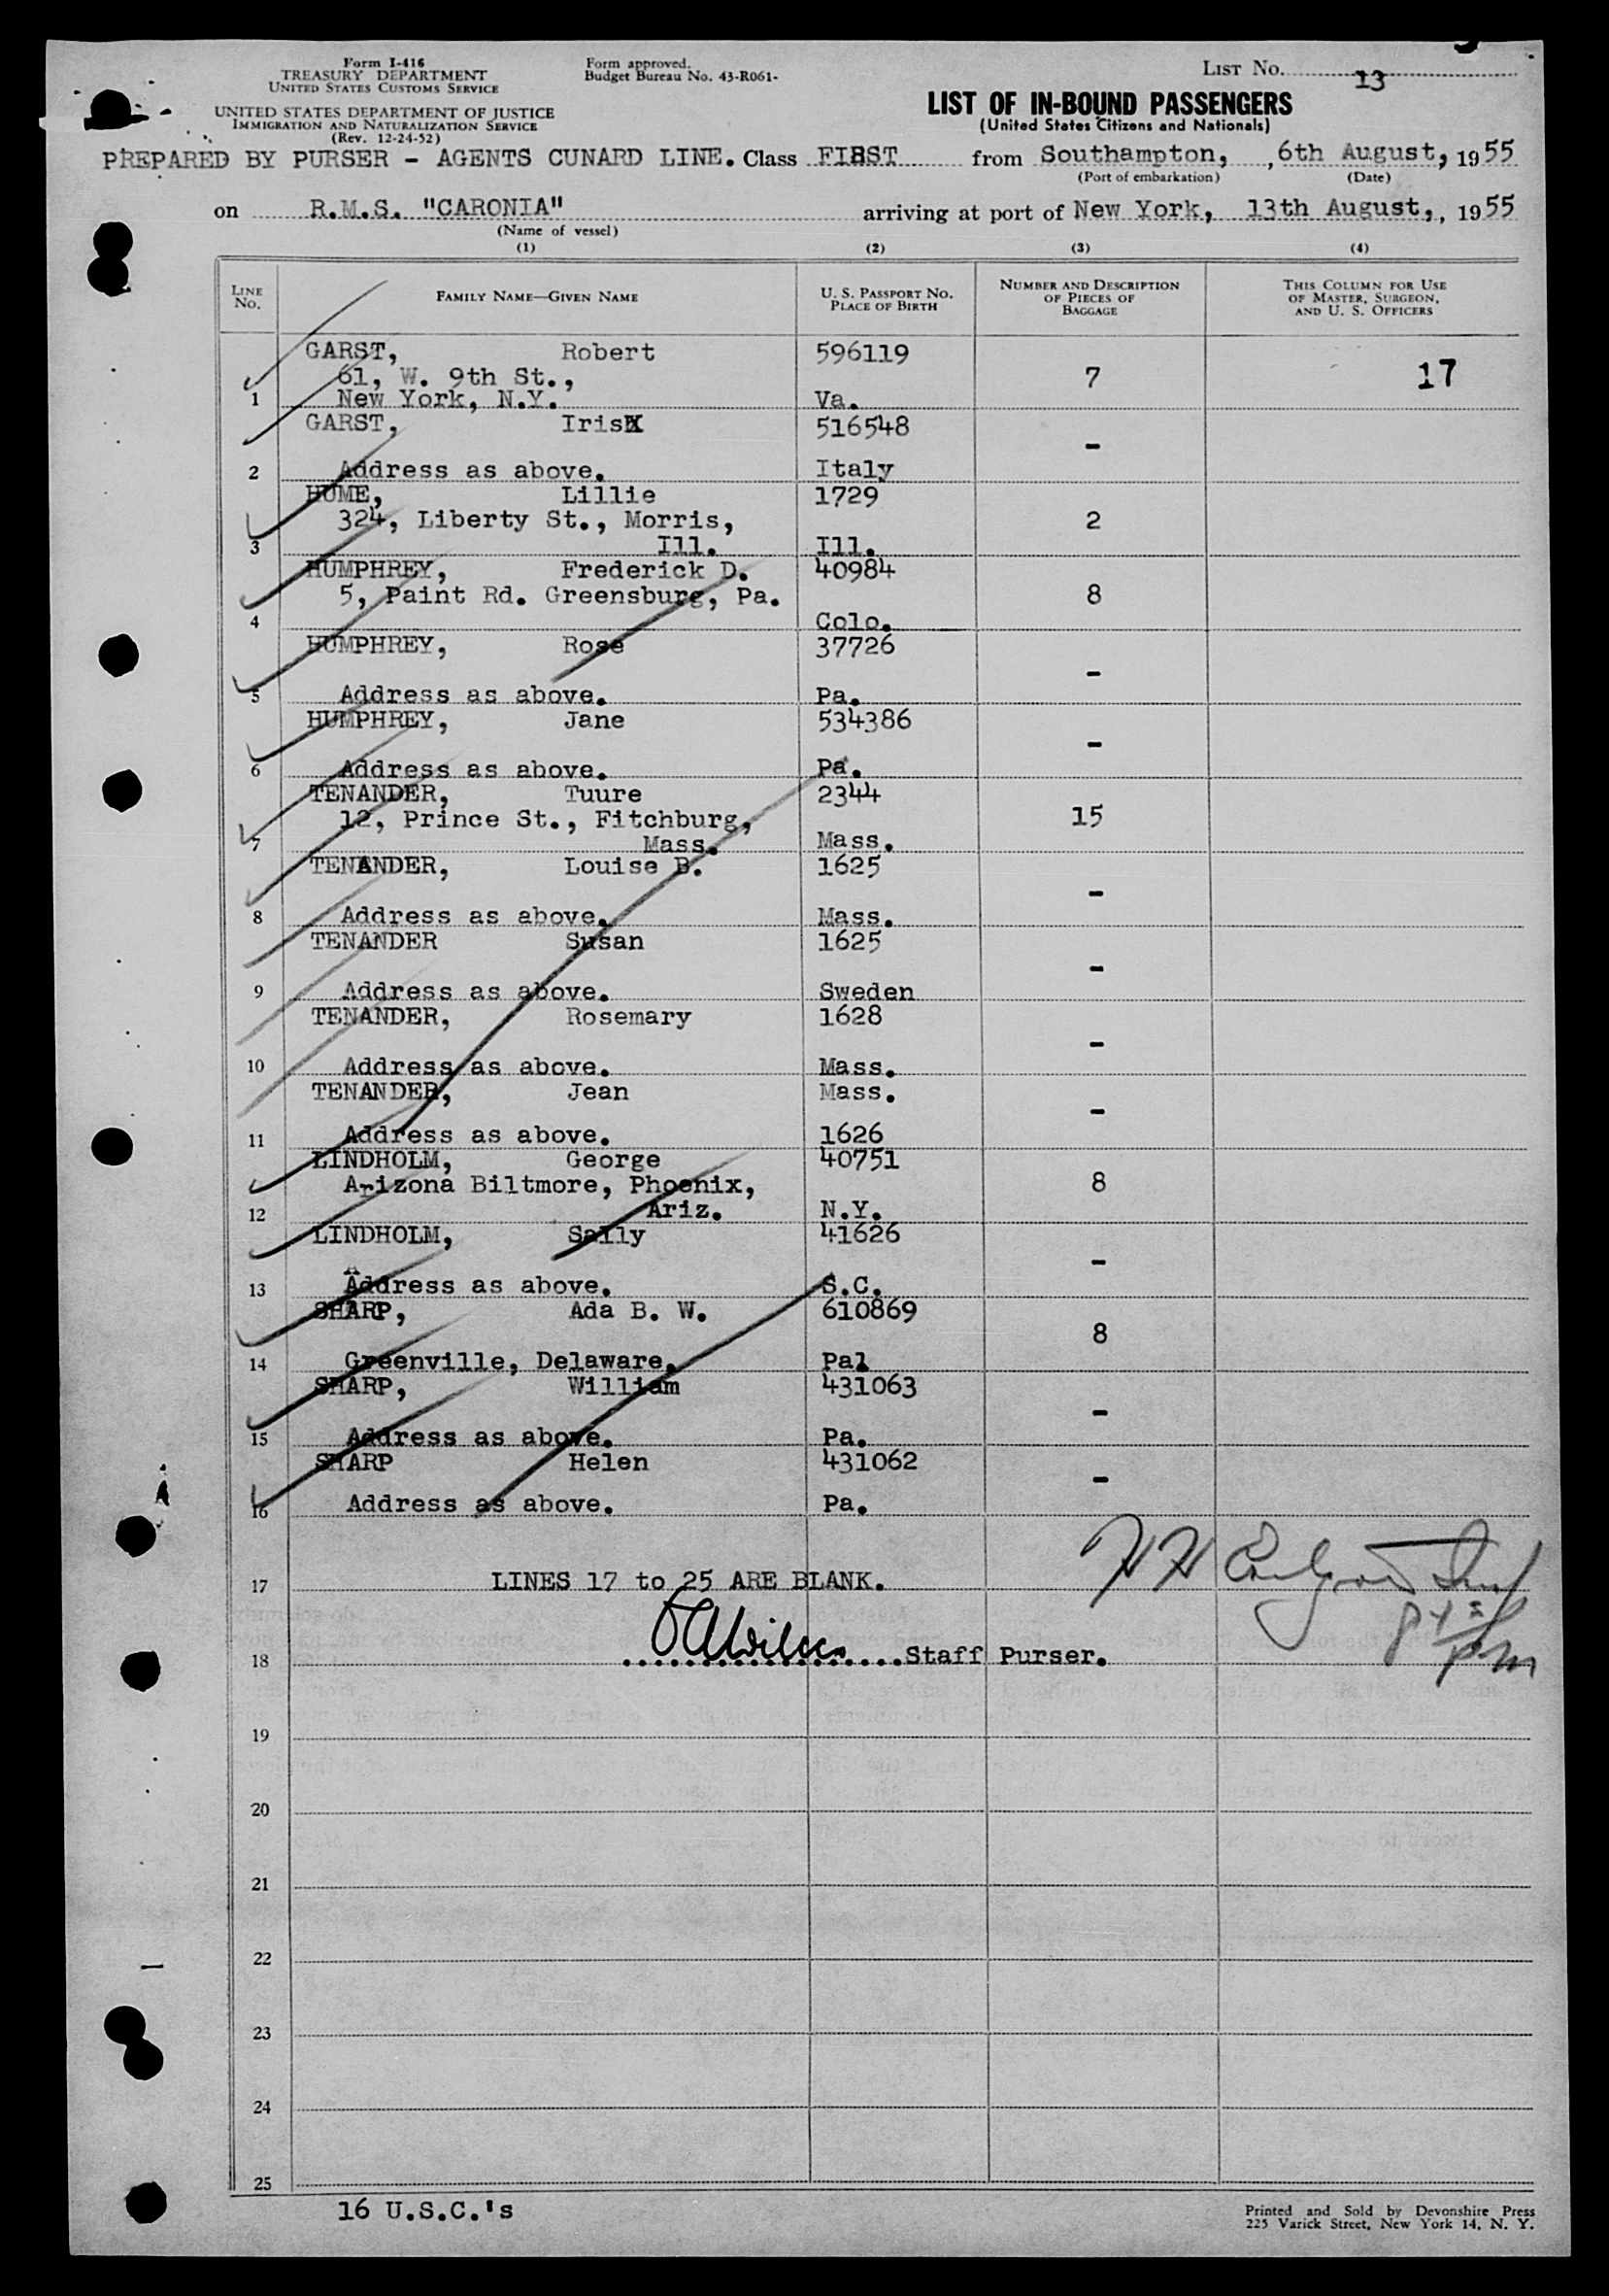 Form I-416
TREASURY DEPARTMENT
UNITED STATES CUSTOMS SERVICE
UNITED STATES DEPARTMENT OF JUSTICE
IMMIGRATION AND NATURALIZATION SERVICE
(Rev. 12-24-52)
Form approved.
Budget Bureau No. 43-R061-
LIST No. 13
LIST OF IN-BOUND PASSENGERS
(United States Citizens and Nationals)
PREPARED BY PURSER - AGENTS CUNARD LINE. Class FIRST from Southampton, , 6th August, 1955
(Port of embarkation) (Date)
on R.M.S. "CARONIA" arriving at port of New York, 13th August, , 1955
(Name of vessel)
(1) (2) (3) (4)
LINE No. FAMILY NAME—GIVEN NAME U. S. PASSPORT NO. PLACE OF BIRTH NUMBER AND DESCRIPTION OF PIECES OF BAGGAGE THIS COLUMN FOR USE OF MASTER, SURGEON, AND U. S. OFFICERS
GARST, Robert 596119
61, W. 9th St., 7 17
1 New York, N.Y. Va.
GARST, Iris 516548
-
2 Address as above. Italy
HUME, Lillie 1729
324, Liberty St., Morris, 2
3 Ill. Ill.
HUMPHREY, Frederick D. 40984
5, Paint Rd. Greensburg, Pa. 8
4 Colo.
HUMPHREY, Rose 37726
-
5 Address as above. Pa.
HUMPHREY, Jane 534386
-
6 Address as above. Pa.
TENANDER, Tuure 2344
12, Prince St., Fitchburg, 15
7 Mass. Mass.
TENANDER, Louise B. 1625
-
8 Address as above. Mass.
TENANDER Susan 1625
-
9 Address as above. Sweden
TENANDER, Rosemary 1628
-
10 Address as above. Mass.
TENANDER, Jean Mass.
-
11 Address as above. 1626
LINDHOLM, George 40751
Arizona Biltmore, Phoenix, 8
12 Ariz. N.Y.
LINDHOLM, Sally 41626
-
13 Address as above. S.C.
SHARP, Ada B. W. 610869
8
14 Greenville, Delaware. Pal
SHARP, William 431063
-
15 Address as above. Pa.
SHARP Helen 431062
-
16 Address as above. Pa.
17 LINES 17 to 25 ARE BLANK.
18 Staff Purser.
19
20
21
22
23
24
25
16 U.S.C.'s
Printed and Sold by Devonshire Press
225 Varick Street, New York 14, N. Y.